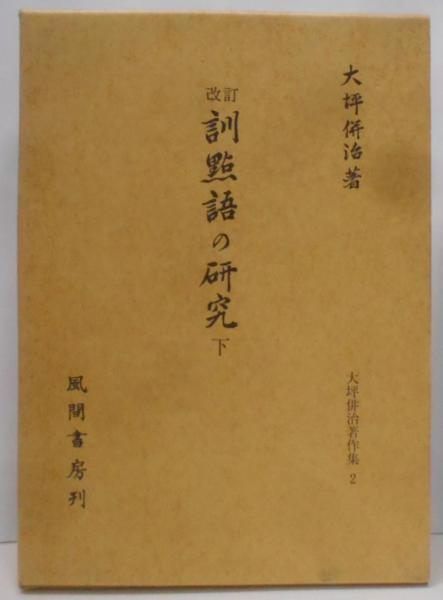 大坪併治著
大坪併治著作集 2
改訂
訓點語の研究 下
風間書房刊